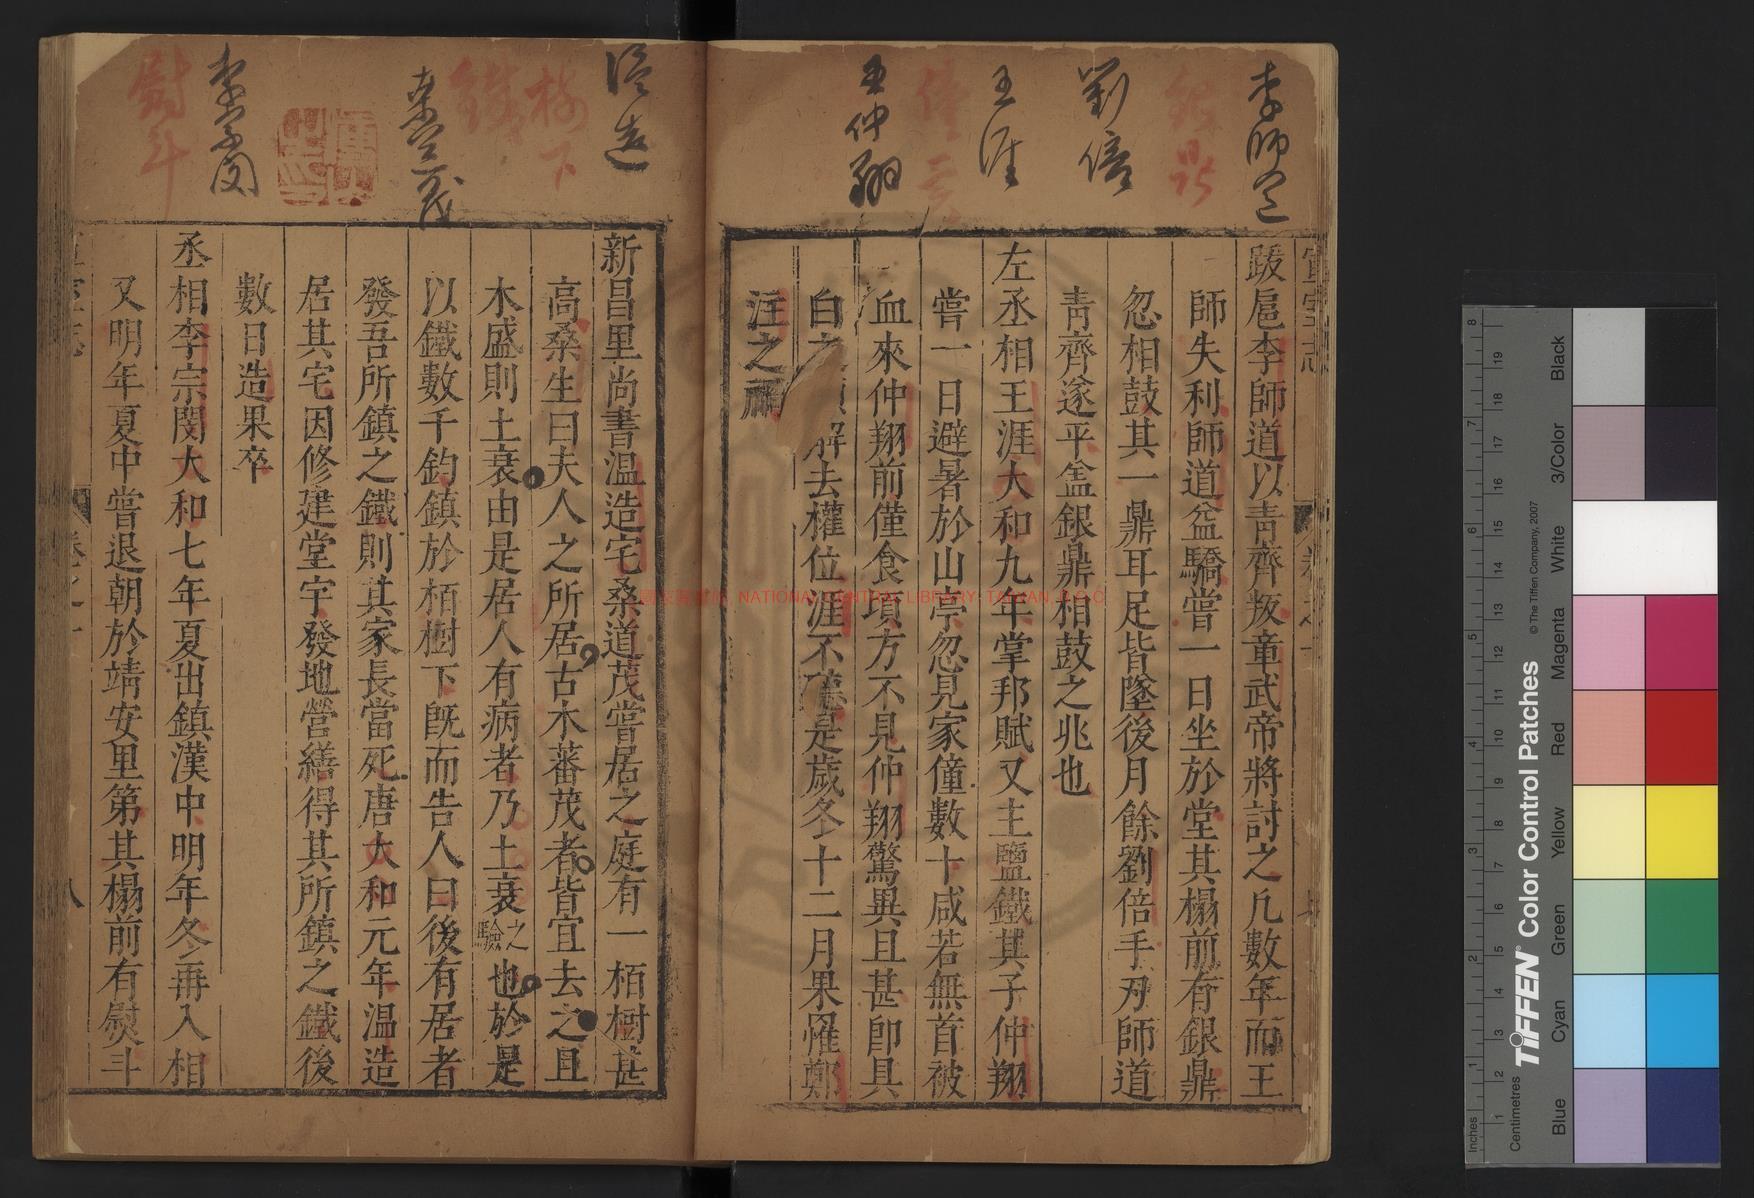 李師道
銀鼎
劉倍
王涯
僮
王仲翔
跋扈李師道以青齊叛章武帝將討之凡數年而王
師失利師道益驕嘗一日坐於堂其榻前有銀鼎
忽相鼓其一鼎耳足皆墜後月餘劉倍手刃師道
青齊遂平盖銀鼎相鼓之兆也
左丞相王涯大和九年掌邦賦又主鹽鐵其子仲翔
嘗一日避暑於山亭忽見家僮數十咸若無首被
血來仲翔前僅食頃方不見仲翔驚異且甚卽具
白之 解去權位涯不聽是歲冬十二月果罹鄭
注之禍
温造
樹下
鐵
桑道茂
李宗閔
熨斗
新昌里尚書温造宅桑道茂嘗居之庭有一栢樹甚
高桑生曰夫人之所居古木蕃茂者皆宜去之且
木盛則土衰由是居人有病者乃土衰之驗也於是
以鐵數千鈞鎮於栢樹下旣而告人曰後有居者
發吾所鎮之鐵則其家長當死唐大和元年温造
居其宅因修建堂宇發地營繕得其所鎮之鐵後
數日造果卒
丞相李宗閔大和七年夏出鎮漢中明年冬再入相
又明年夏中嘗退朝於靖安里第其榻前有熨斗
宣室志
卷之一
八
NATIONAL CENTRAL LIBRARY, TAIWAN, R.O.C
TIFFEN Color Control Patches
© The Tiffen Company, 2007
Centimetres
Inches
Blue
Cyan
Green
Yellow
Red
Magenta
White
3/Color
Black